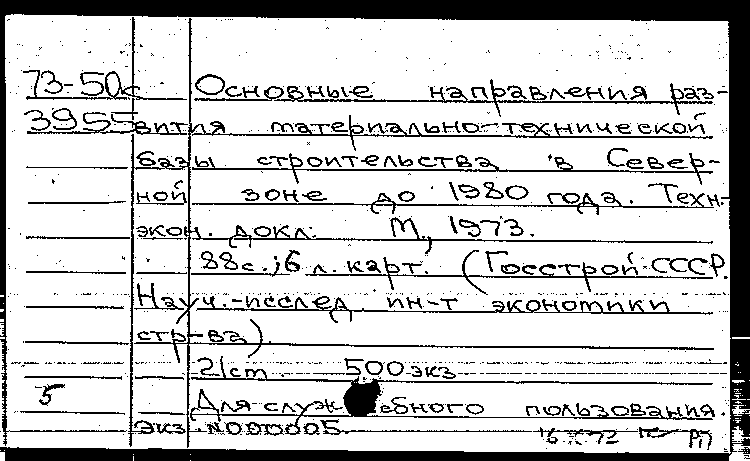 73-50с Основные направления раз-
3955 вития материально-технической
базы строительства в Север-
ной зоне до 1980 года. Техн.-
экон. докл. М., 1973.
88с.; 6 л. карт. (Госстрой СССР.
Науч.-исслед ин-т экономики
стр-ва).
21см 500 экз
5 Для служебного пользования.
Экз. №000005. 16 X 72